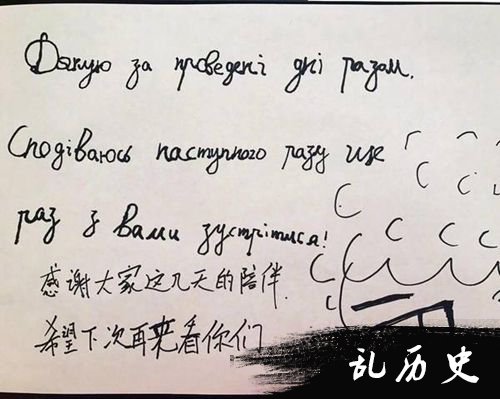 Дякую за проведені дні разом.
Сподіваюсь наступного разу ще
раз з вами зустрітися!
感谢大家这几天的陪伴.
希望下次再来看你们
乱历史